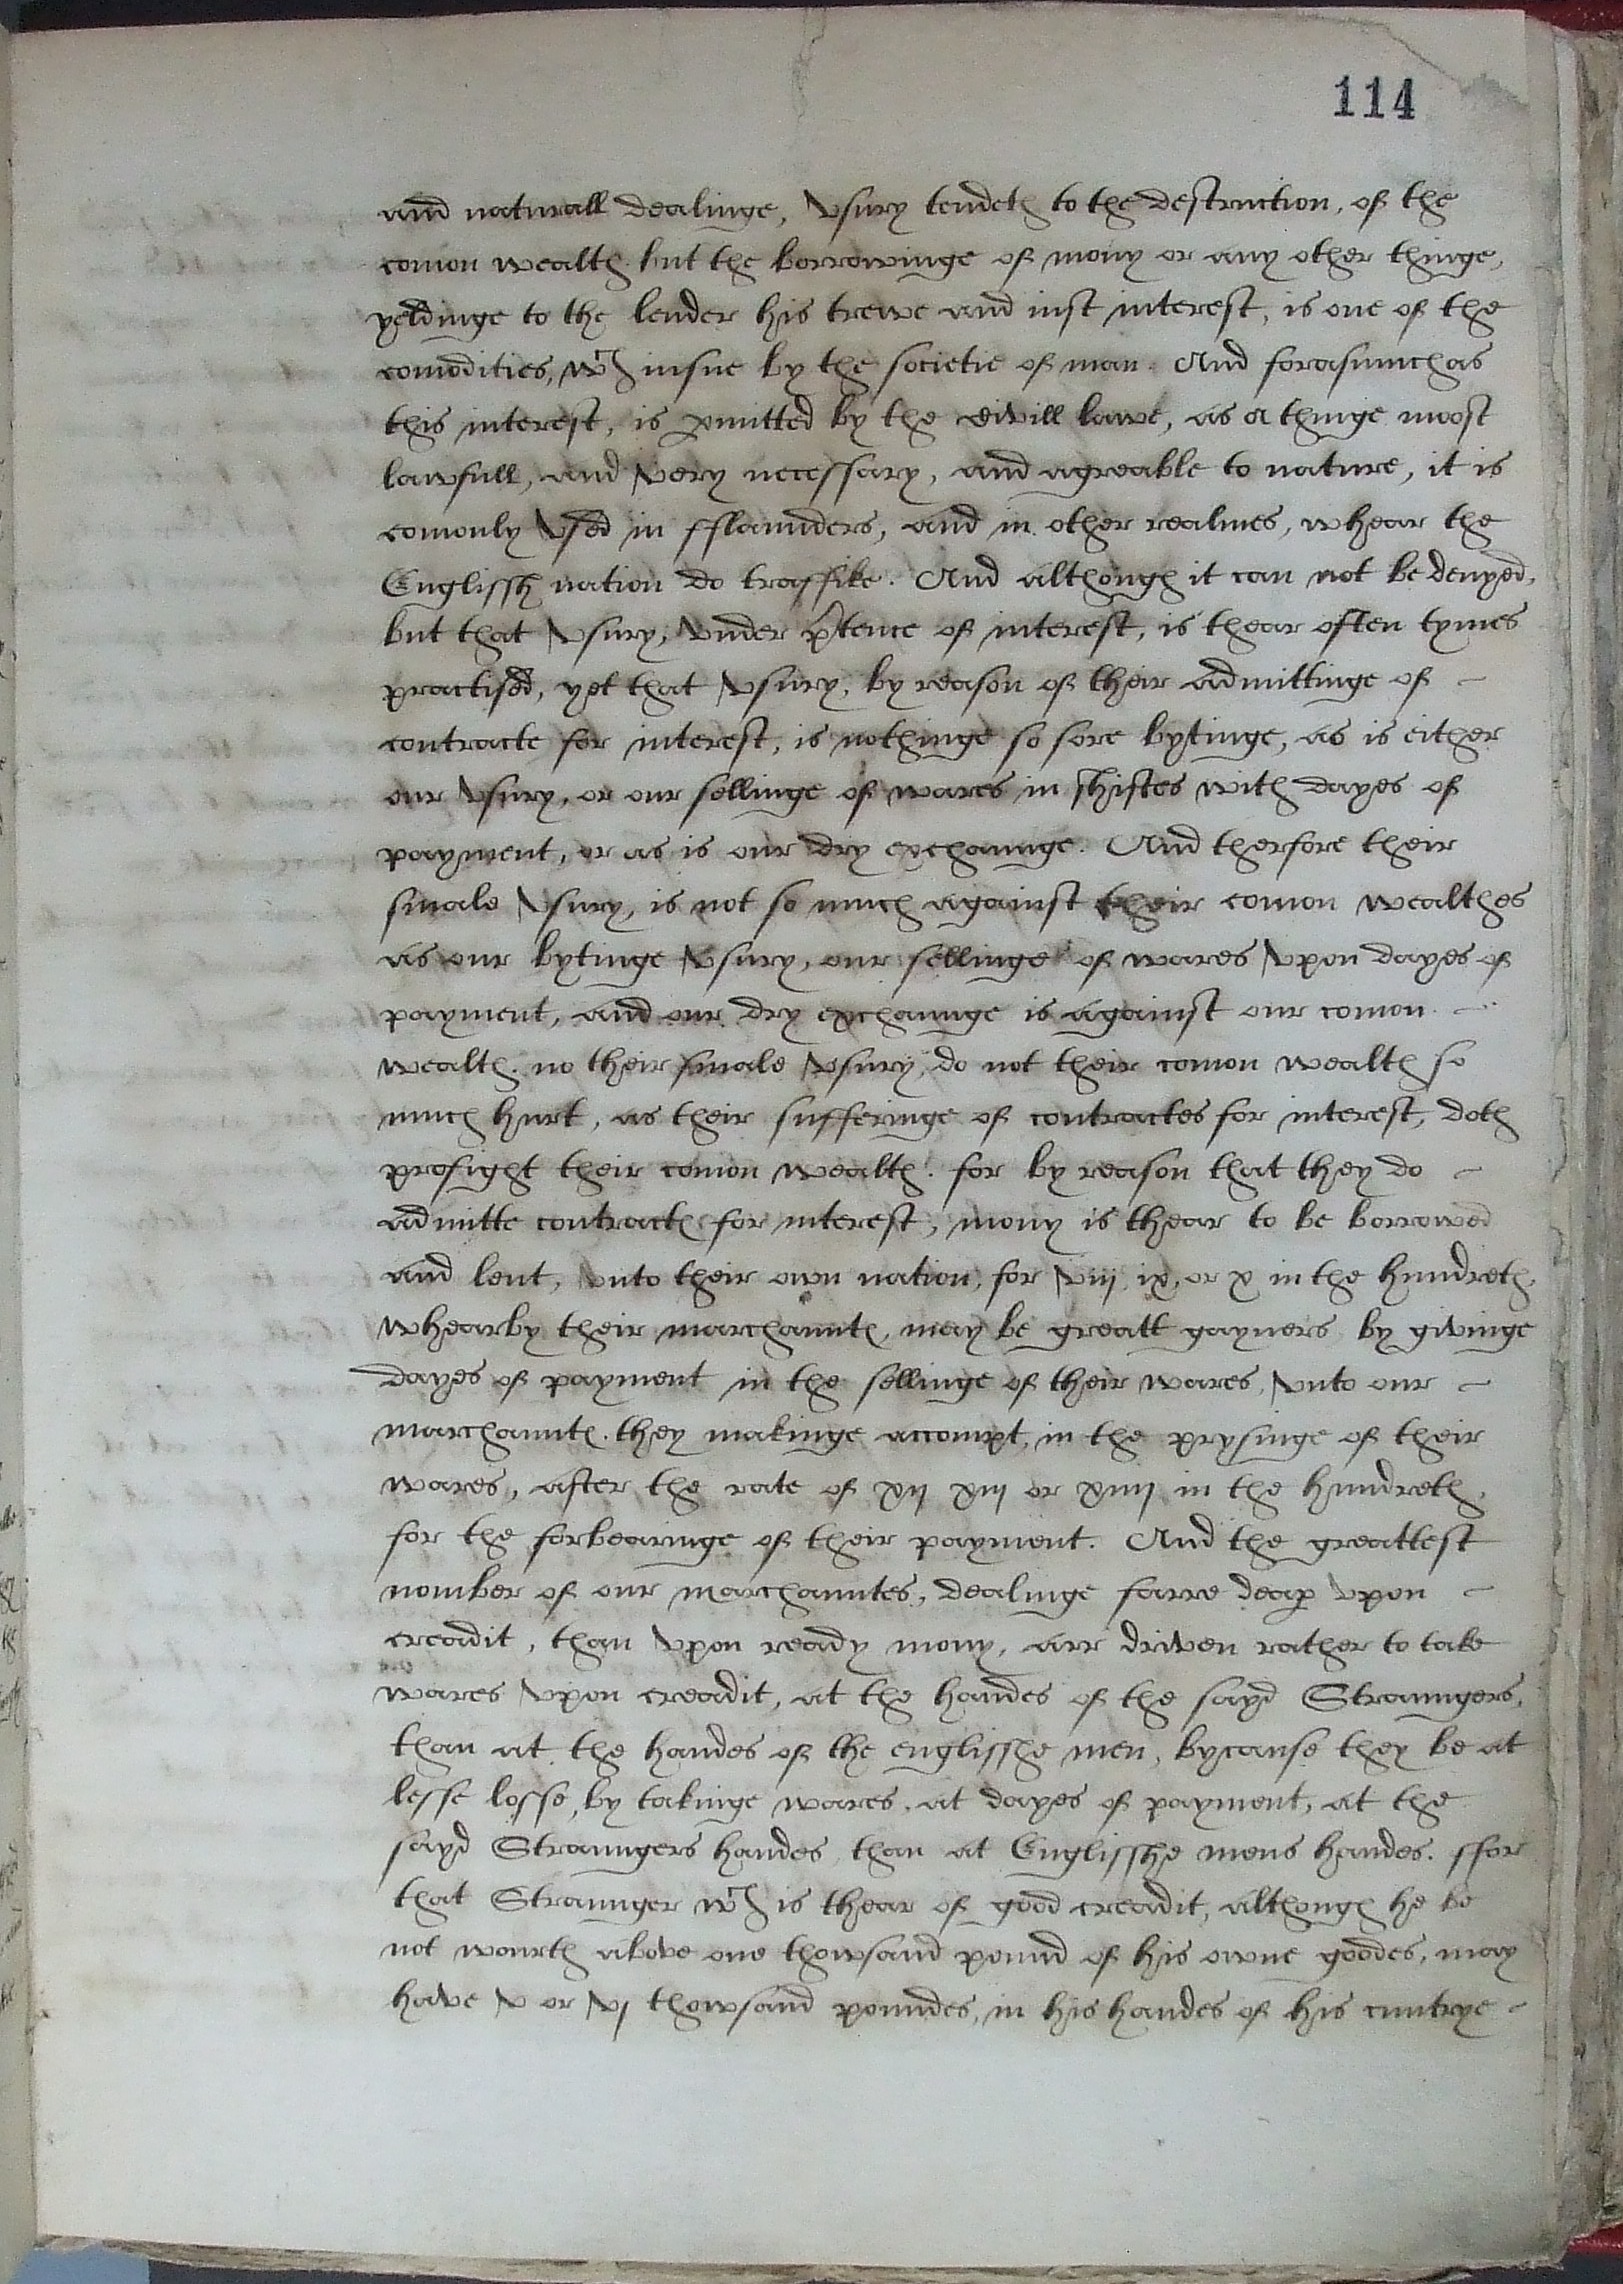 114
and naturall dealinge, vsury tendeth to the destruction, of the
comon wealth. but the borrowinge of mony or any other thinge,
yeldinge to the lender his trewe and iust interest, is one of the
comodities, wch insue by the societie of man. And forasmuch as
this interest, is pmitted by the civill lawe, as a thinge moost
lawfull, and very necessary, and agreable to nature, it is
comonly vsed in fflaunders, and in other realmes, whear the
Englissh nation do traffike. And although it can not be denyed,
but that vsury, vnder ptence of interest, is thear often tymes
practised, yet that vsury, by reason of their admittinge of -
contracte for interest, is nothinge so sore bytinge, as is either
our vsury, or our sellinge of wares in shiftes with dayes of
payment, or as is our dry exchaunge. And therfore their
smale vsury, is not so much against their comon wealthes
as our bytinge vsury, our sellinge of wares vpon dayes of
payment, and our dry exchaunge is against our comon -
wealth. no their smale vsury, do not their comon wealth so
much hurt, as their sufferinge of contractes for interest, doth
profight their comon wealth. for by reason that they do -
admitte contractes for interest, mony is thear to be borrowed
and lent, vnto their own nation, for viij, ix, or x in the hundreth,
whearby their marchauntes, may be greatt gayners by givinge
dayes of payment in the sellinge of their wares, vnto our -
marchauntes. they makinge accompt, in the prysinge of their
wares, after the rate of xij xiij or xiiij in the hundreth,
for the forbearinge of their payment. And the greattest
nomber of our marchauntes, dealinge farre deap vpon -
creadit, than vpon ready mony, arr driven rather to take
wares vpon creadit, at the handes of the sayd Straungers,
than at the handes of the englisshe men, bycause they be at
lesse losse, by takinge wares, at dayes of payment, at the
sayd Straungers handes, than at Englisshe mens handes. ffor
that Straunger wch is thear of good creadit, although he be
not wourth above one thowsand pound of his owne goodes, may
have v or vj thowsand poundes, in his handes of his cuntrye -